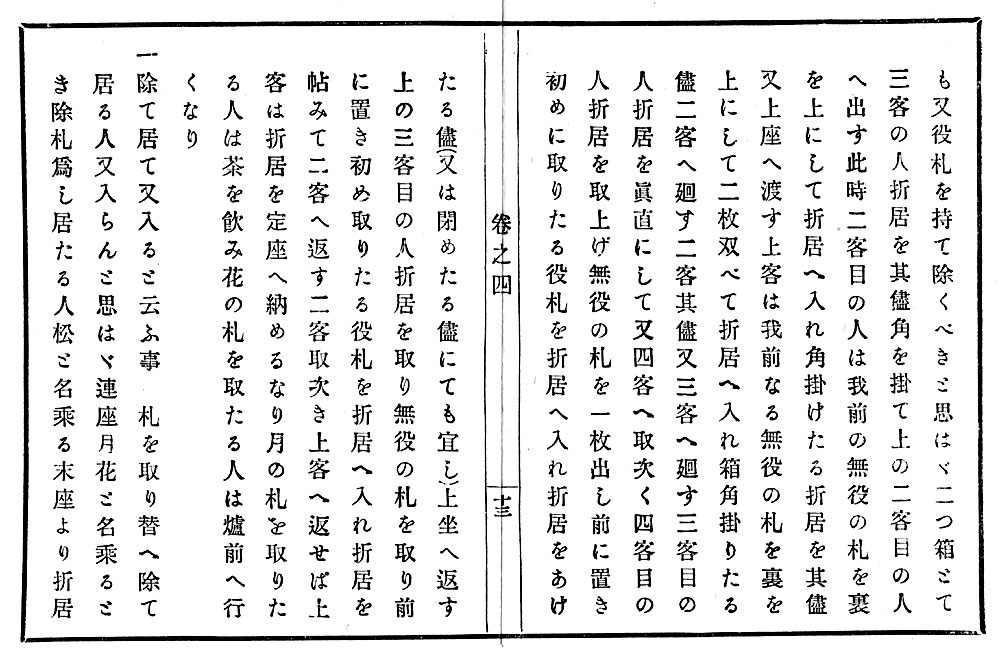 も又役札を持て除くべきと思はヾ二つ箱とて
三客の人折居を其儘角を掛て上の二客目の人
へ出す此時二客目の人は我前の無役の札を裏
を上にして折居へ入れ角掛けたる折居を其儘
又上座へ渡す上客は我前なる無役の札を裏を
上にして二枚双べて折居へ入れ箱角掛りたる
儘二客へ廻す二客其儘又三客へ廻す三客目の
人折居を眞直にして又四客へ取次く四客目の
人折居を取上げ無役の札を一枚出し前に置き
初めに取りたる役札を折居へ入れ折居をあけ
卷之四
十三
たる儘(又は閉めたる儘にても宜し)上坐へ返す
上の三客目の人折居を取り無役の札を取り前
に置き初め取りたる役札を折居へ入れ折居を
帖みて二客へ返す二客取次き上客へ返せば上
客は折居を定座へ納めるなり月の札を取りた
る人は茶を飲み花の札を取たる人は爐前へ行
くなり
一除て居て又入ると云ふ事　札を取り替へ除て
居る人又入らんと思はヾ連座月花と名乘ると
き除札爲し居たる人松と名乘る末座より折居